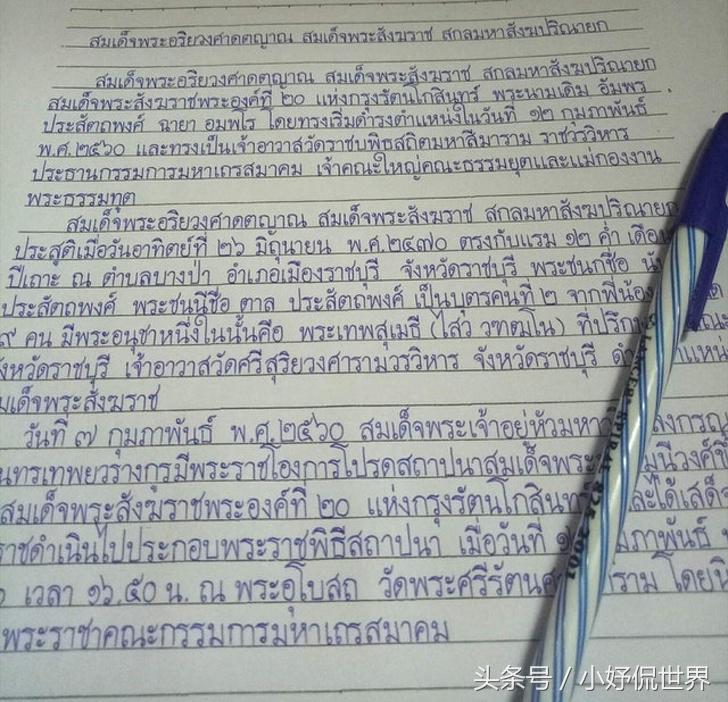 สมเด็จพระอริยวงศาคตญาณ สมเด็จพระสังฆราช สกลมหาสังฆปริณายก
สมเด็จพระอริยวงศาคตญาณ สมเด็จพระสังฆราช สกลมหาสังฆปริณายก
สมเด็จพระสังฆราชพระองค์ที่ ๒๐ แห่งกรุงรัตนโกสินทร์ พระนามเดิม อัมพร
ประสัตถพงศ์ ฉายา อมฺพโร โดยทรงเริ่มดำรงตำแหน่งในวันที่ ๑๒ กุมภาพันธ์
พ.ศ.๒๕๖๐ และทรงเป็นเจ้าอาวาสวัดราชบพิธสถิตมหาสีมาราม ราชวรวิหาร
ประธานกรรมการมหาเถรสมาคม เจ้าคณะใหญ่คณะธรรมยุตและแม่กองงาน
พระธรรมทูต
สมเด็จพระอริยวงศาคตญาณ สมเด็จพระสังฆราช สกลมหาสังฆปริณายก
ประสูติเมื่อวันอาทิตย์ที่ ๒๖ มิถุนายน พ.ศ.๒๔๗๐ ตรงกับแรม ๑๒ ค่ำ เดือน
ปีเถาะ ณ ตำบลบางป่า อำเภอเมืองราชบุรี จังหวัดราชบุรี พระชนกชื่อ
ประสัตถพงศ์ พระชนนีชื่อ ตาล ประสัตถพงศ์ เป็นบุตรคนที่ ๒ จากพี่น้อง
๙ คน มีพระอนุชาหนึ่งในนั้นคือ พระเทพสุเมธี (ไสว วฑฺฒโน) ที่ปรึกา
ังหวัดราชบุรี เจ้าอาวาสวัดศรีสุริยวงศารามวรวิหาร จังหวัดราชบุรี ดำ แหน่ง
มเด็จพระสังฆราช
วันที่ ๗ กุมภาพันธ์ พ.ศ.๒๕๖๐ สมเด็จพระเจ้าอยู่หัวมหา ลงกรณ
นทรเทพยวรางกูรมีพระราชโองการโปรดสถาปนาสมเด็จพระ มุนีวงศ์
สมเด็จพระสังฆราชพระองค์ที่ ๒๐ แห่งกรุงรัตนโกสินทร์ ละได้เสด็
ราชดำเนินไปประกอบพระราชพิธีสถาปนา เมื่อวันที่ มภาพันธ์
เวลา ๑๖.๕๐ น. ณ พระอุโบสถ วัดพระศรีรัตนศ าราม โดย
พระราชาคณะกรรมการมหาเถรสมาคม
头条号 / 小妤侃世界